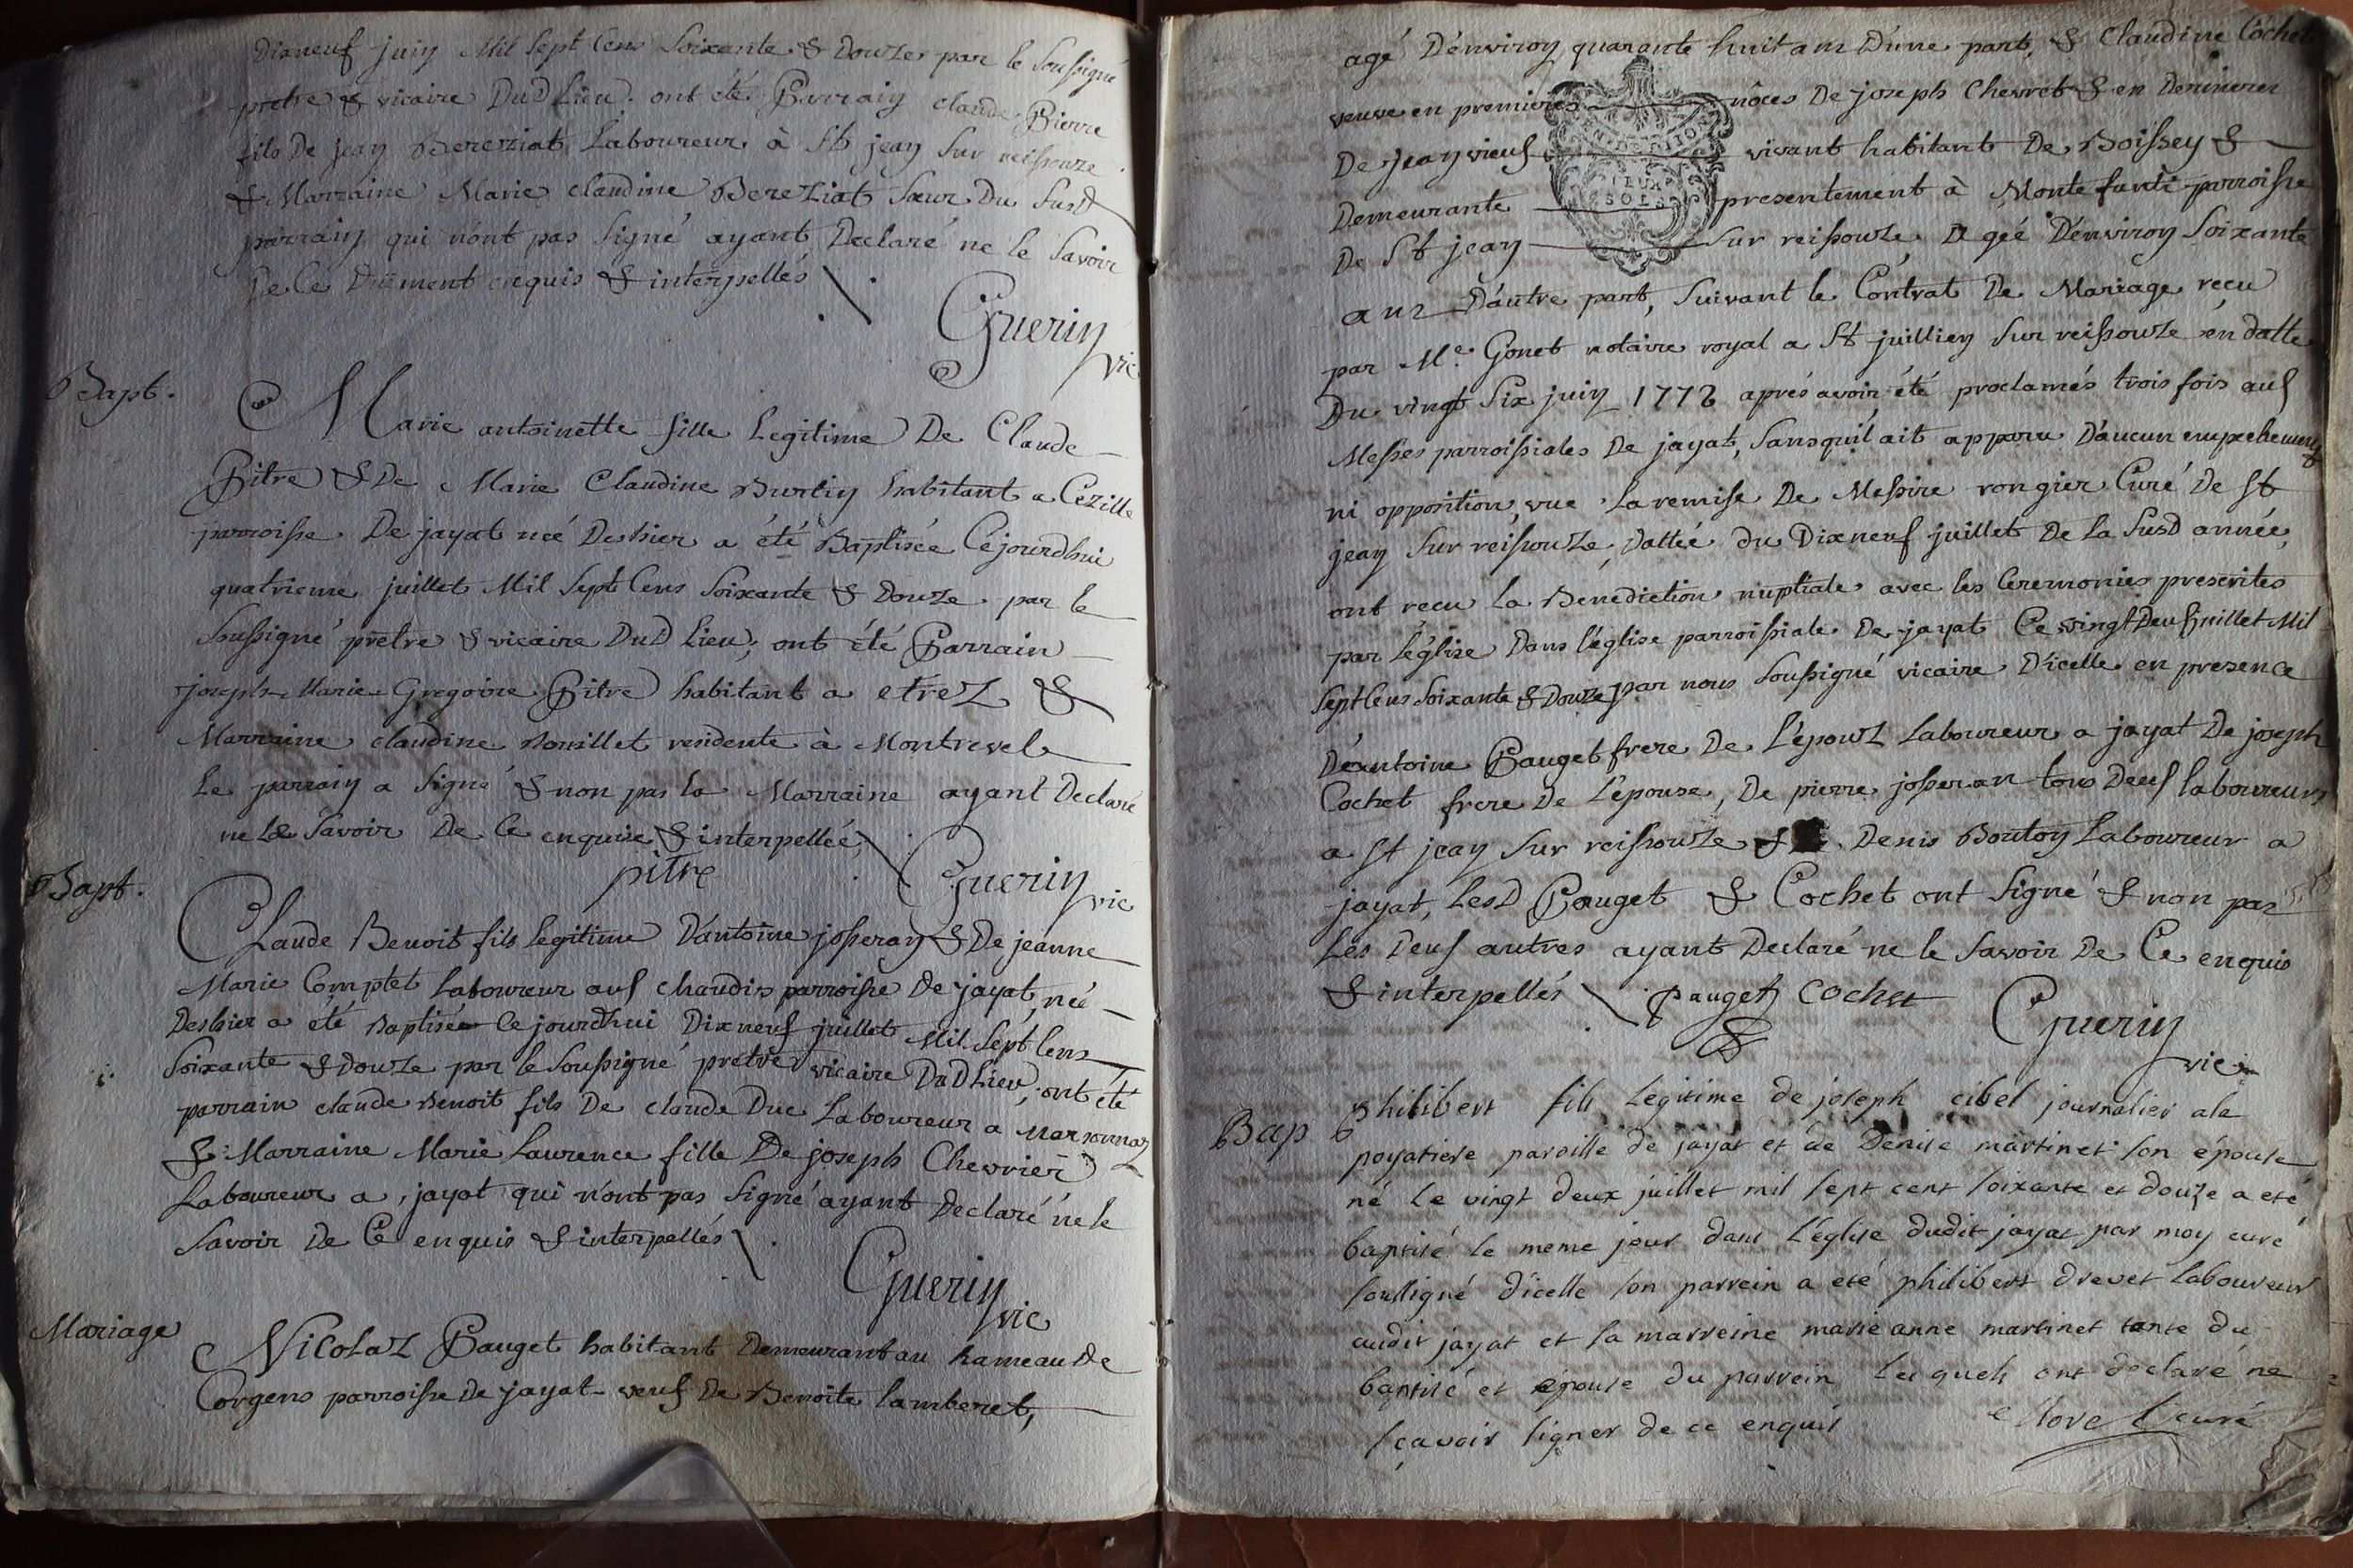 Dixneuf juin Mil Sept Cens Soixante & Douze par le Soussigné
pretre & vicaire DuD Lieu. ont été Parrain claude Pierre
fils De jean Bereziat Laboureur à St jean Sur reissouze.
& Marraine Marie claudine Bereziat Sœur Du SusD
parrain qui n'ont pas Signé ayant Declaré ne le Savoir
De Ce Düement enquis & interpellés
Guerin
vic
Bapt.
Marie antoinette fille Legitime De Claude
Pitre & De Marie Claudine Burtin habitant a Cézille
parroisse De jayat neé Deshier a été Baptisée Cejourdhui
quatrieme juillet Mil Sept Cens Soixante & Douze par le
Soussigné pretre & vicaire DuD Lieu; ont été Parrain
joseph Marie Gregoire Pitre habitant a etrez &
Marraine claudine Bouillet residente à Montrevel
Le parrain a Signé & non pas la Marraine ayant Declaré
ne Le Savoir De Ce enquise & interpellée
pitre
Guerin
vic
Bapt.
Claude Benoit fils legitime D'antoine josseran & De jeanne
Marie Comptet Laboureur aus chaudis parroisse De jayat, né
Deshier a été Baptisé Cejourdhui Dixneuf juillet Mil Sept Cens
Soixante & Douze par le Soussigné pretre vicaire DuD Lieu; ont été
parrain claude Benoit fils De claude Duc Laboureur a Marsonnaz
& Marraine Marie Laurence fille De joseph Chevrier
Laboureur a jayat qui n'ont pas Signé ayant Declaré ne le
Savoir De Ce enquis & interpellés
Guerin
vic
Mariage
Nicolaz Pauget habitant Demeurant au hameau De
Corgens parroisse De jayat veuf De Benoite lamberet,
agé D'environ quarante huit ans D'une part, & Claudine Cochet
veuve en premieres nôces De joseph Chevret & en Dernieres
De jean vieuf vivant habitant De Boissey &
Demeurante presentement à Montefanti parroisse
De St jean Sur reissouze Ageé D'environ Soixante
DEUX
SOLS
ans D'autre part, Suivant le Contrat De Mariage reçu
par Me. Gonet notaire royal a St jullien Sur reissouze en datte
Du vingt Six juin 1772 aprés avoir été proclamés trois fois aus
Messes parroissiales De jayat, Sans qu'il ait apparu D'aucun empechement
ni opposition, vue la remise De Messire rongier Curé De St
jean Sur reissouze, Dattée du Dixneuf juillet De La SusD année,
ont reçu La Bénédiction nuptiale avec les Ceremonies prescrites
par L'église Dans l'église parroissiale De jayat Ce vingt Deus juillet Mil
Sept Cens Soixante & Douze par nous Soussigné vicaire D'icelle en presence
D'antoine Pauget frere De L'épouz Laboureur a jayat De joseph
Cochet frere De L'épouse, De pierre josseran tous Deus laboureurs
a St jean Sur reissouze & Denis Bouton Laboureur a
jayat, LesD Pauget & Cochet ont Signé & non pas
Les Deus autres ayant Declaré ne le Savoir De Ce enquis
& interpellés
Pauget Cochet
Guerin
vic
Bap
philibert fils Legitime de joseph cibel journalier ala
poyatiere paroisse de jayat et de Denise martinet son épouse
né Le vingt deux juillet mil sept cent soixante et douze a eté
baptisé le meme jour dans L'église dudit jayat par moy curé
soussigné d'icelle son parrein a eté philibert drevet laboureur
audit jayat et la marreine marie anne martinet tante du
baptisé et epouse du parrein Les quels ont declaré ne
sçavoir signer de ce enquis
curé